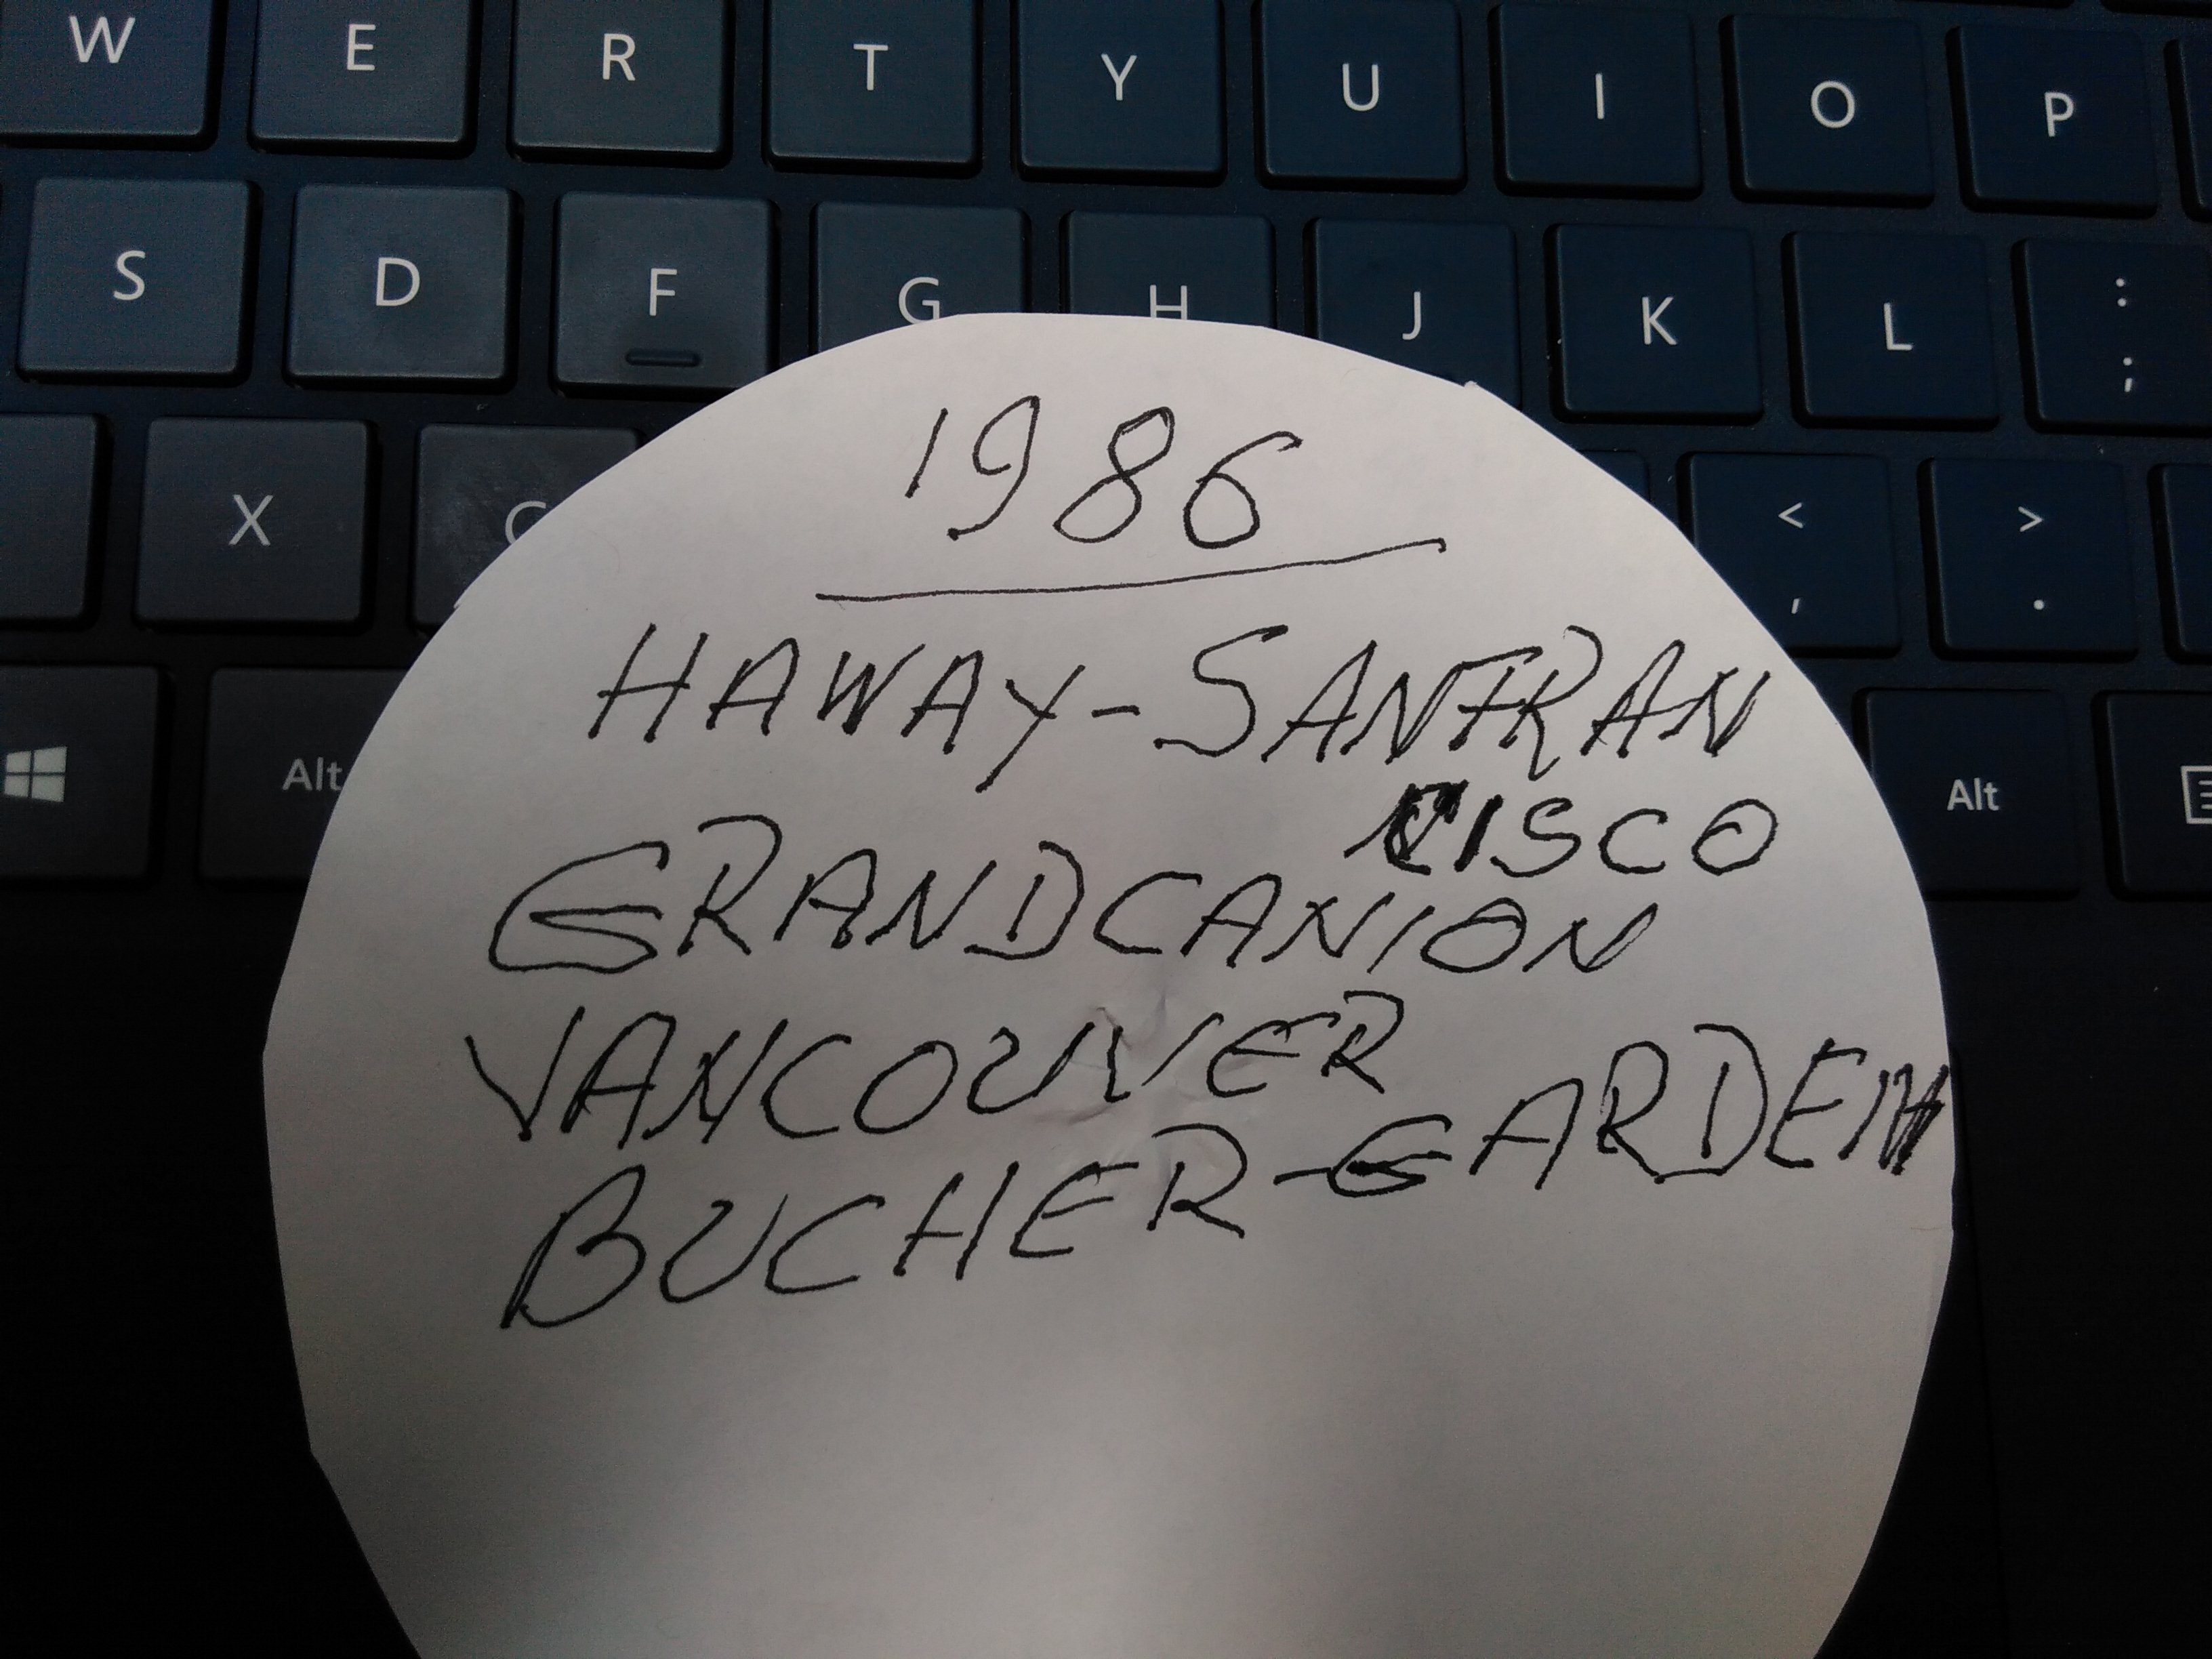 W E R T Y U I O P
S D F G H J K L : ;
X C < , > .
Alt Alt
1986
HAWAY-SANFRAN
CISCO
GRANDCANION
VANCOUVER
BUCHER-GARDEN